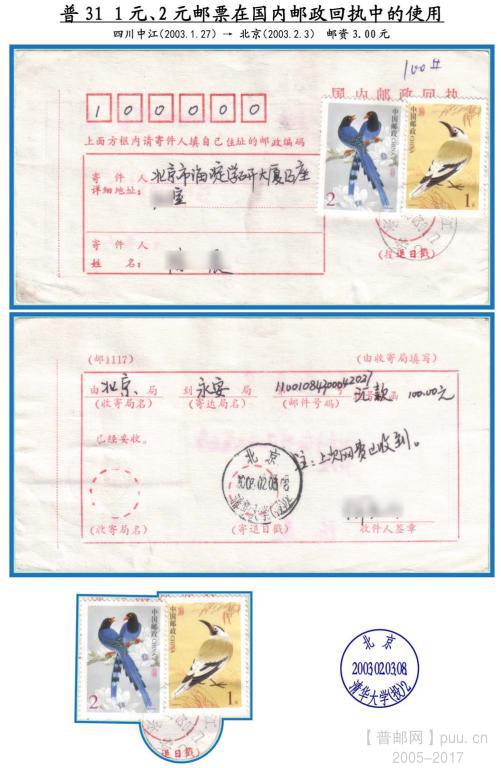 普31 1元、2元邮票在国内邮政回执中的使用
四川中江(2003.1.27) → 北京(2003.2.3) 邮资3.00元
100元
国内邮政回执
1 0 0 0 0 0
上面方框内请寄件人填自己住址的邮政编码
寄件人
详细地址:
北京市海淀学研大厦B座
室
寄件人
姓名:
中国邮政 CHINA
2元
中国邮政 CHINA
1元
(投递日戳)
(邮1117)
(由收寄局填写)
由北京局 到永安 11001084300042027 汇款 100.00元
(收寄局名) (寄达局名) (邮件号码)
已经妥收。
注:上次网费已收到。
北京
2003.02.03.08
清华大学(投)2
(收寄局名) (寄退日戳) 收件人签章
中国邮政 CHINA
2元
中国邮政 CHINA
1元
递日戳)
北京
2003.02.03.08
清华大学(投)2
【普邮网】puu.cn
2005-2017